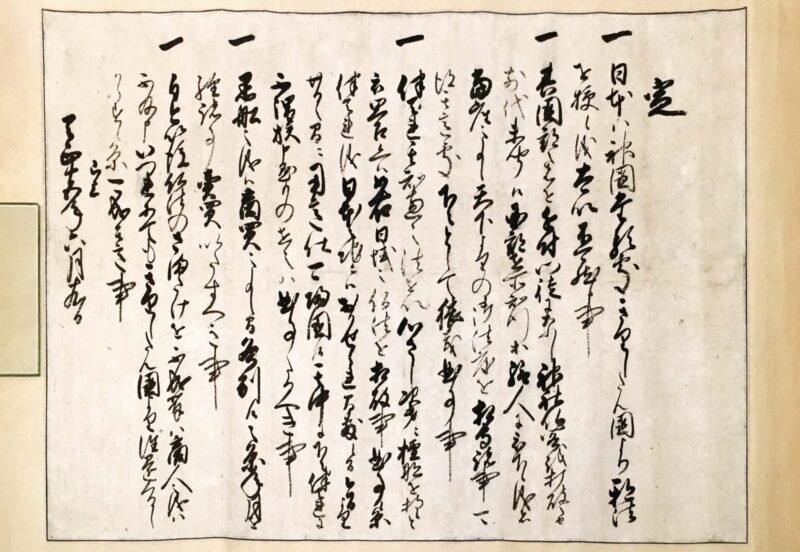 定
一 日本ハ神國たる処きりしたん國より邪法
を授候儀太以不可然候事
一 其國郡之者を近付門徒になし神社仏閣を打破之由
前代未聞候國郡在所知行等給人に被下候儀者
當座之事候天下よりの御法度を相守諸事可
得其意処下々として猥義曲事事
一 伴天連其知恵之法を以心さし次第ニ檀那を持候と
被思召候へハ如右日域之仏法を相破事曲事候条
伴天連儀日本之地ニハおかせられ間敷候間今日より
廿日之間ニ用意仕可帰國候其中に下々伴天連に
不謂族申懸もの在之ハ曲事たるへき事
一 黒船之儀ハ商買之事候間各別候之条年月を
経諸事賣買いたすへき事
一 自今以後仏法のさまたけを不成輩ハ商人之儀ハ
不及申いつれにてもきりしたん國より往還くるし
からす候条可成其意事
已上
天正十五年六月十九日